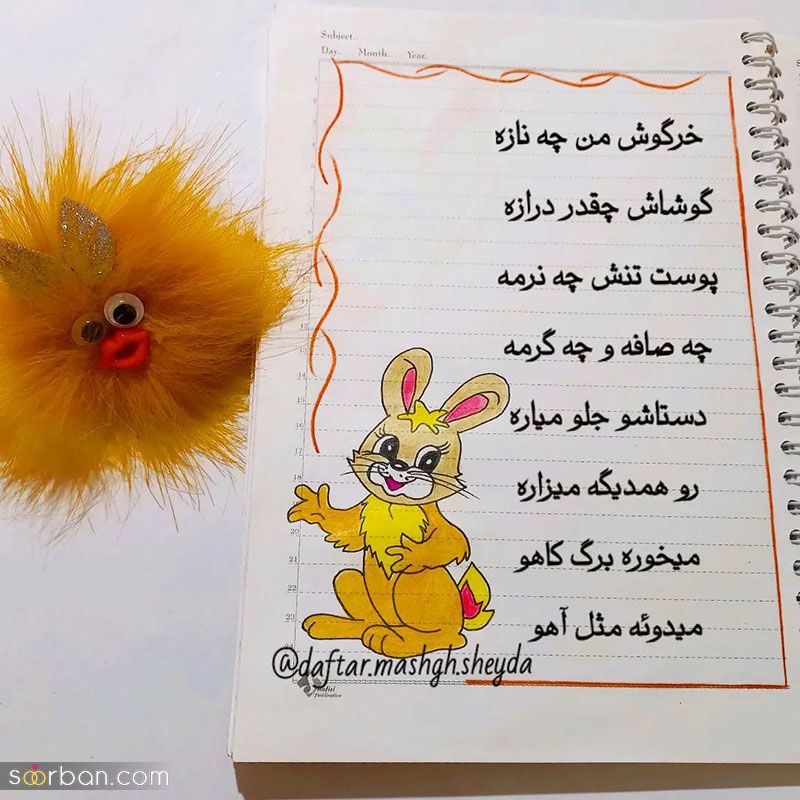 Subject.
Day. Month. Year.
خرگوش من چه نازه
گوشاش چقدر درازه
پوست تنش چه نرمه
چه صافه و چه گرمه
دستاشو جلو میاره
رو همدیگه میزاره
میخوره برگ کاهو
میدوئه مثل آهو
@daftar.mashgh.sheyda
soorban.com